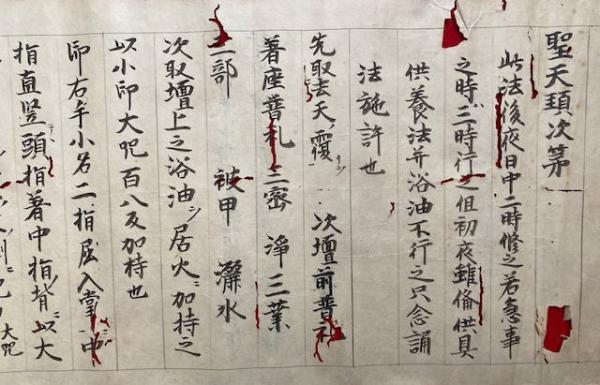 聖天頚次第
此法後夜日中二時修之若急事
之時ハ三時行之但初夜雖俻供具
供養法并浴油不行之只念誦
法施許也
先取去天ノ覆ヲ 次壇前普礼
着座普礼 三密 浄三業
三部 被甲 灑水
次取壇上之浴油ヲ居火ニ加持之
以小印大咒百八反加持也
印右手小名二指屈入掌中
指直竪頭指着中指背ニ以大